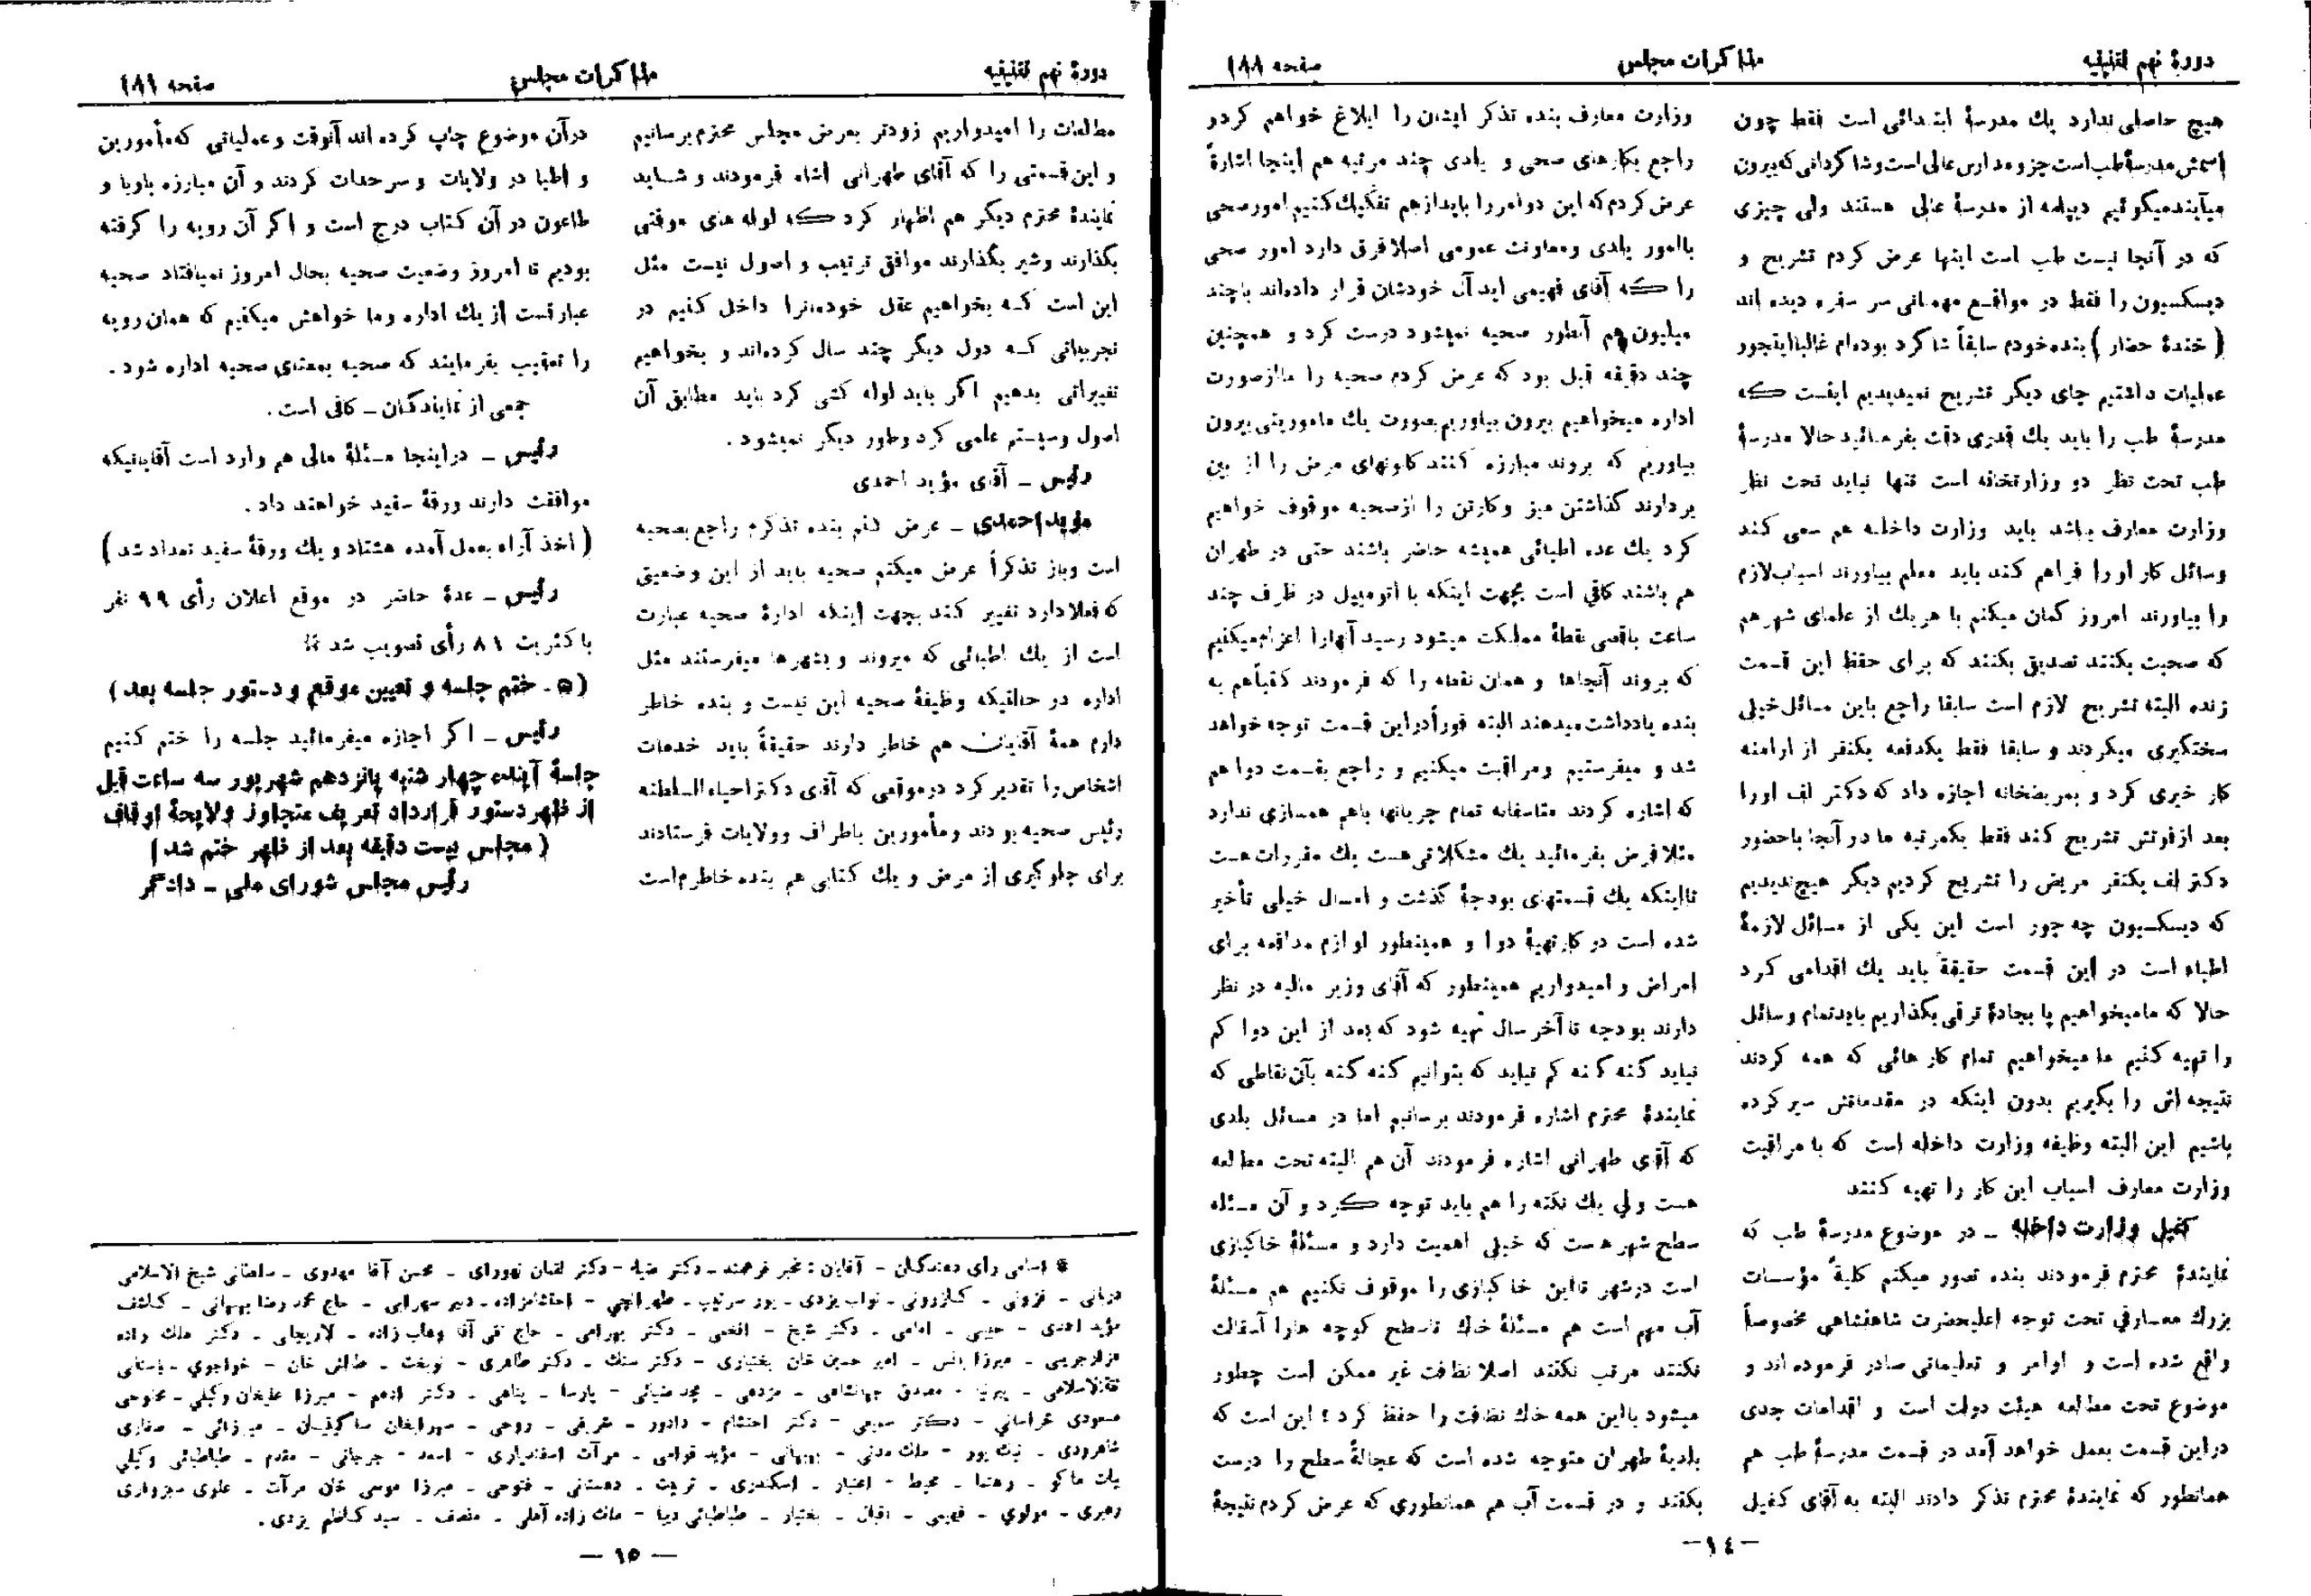 دورهٔ نهم تقنینیه
مذاکرات مجلس
صفحه ۱۸۸
هیچ حاصلی ندارد یك مدرسهٔ ابتدائی است فقط چون
اسمش مدرسهٔ طب است جزو مدارس عالی است و شاگردانی که بیرون
میآیند میگوئیم دیپلمه از مدرسهٔ عالی هستند ولی چیزی
که در آنجا نیست طب است اینها عرض کردم تشریح و
دیسکسیون را فقط در مواقع مهمانی سر سفره دیده اند
(خندهٔ حضار) بنده خودم سابقاً شاگرد بوده‌ام غالبا اینجور
عملیات داشتیم جای دیگر تشریح نمیدیدیم اینست که
مدرسهٔ طب را باید یك قدری دقت بفرمائید حالا مدرسهٔ
طب تحت نظر دو وزارتخانه است تنها نباید تحت نظر
وزارت معارف باشد باید وزارت داخله هم سعی کند
وسائل کار او را فراهم کند باید معلم بیاورند اسباب لازم
را بیاورند امروز گمان میکنم با هریك از علمای شهر هم
که صحبت بکنند تصدیق بکنند که برای حفظ این قسمت
زنده البته تشریح لازم است سابقا راجع باین مسائل خیلی
سختگیری میکردند و سابقا فقط یکدفعه یکنفر از ارامنه
کار خیری کرد و بمریضخانه اجازه داد که دکتر لف او را
بعد از فوتش تشریح کند فقط یکمرتبه ما در آنجا باحضور
دکتر لف یکنفر مریض را تشریح کردیم دیگر هیچ ندیدیم
که دیسکسیون چه جور است این یکی از مسائل لازمهٔ
اطباء است در این قسمت حقیقةً باید یك اقدامی کرد
حالا که ما میخواهیم پا بجادهٔ ترقی بگذاریم باید تمام وسائل
را تهیه کنیم ما میخواهیم تمام کار هائی که همه کردند
نتیجه اش را بگیریم بدون اینکه در مقدماتش سیر کرده
باشیم این البته وظیفه وزارت داخله است که با مراقبت
وزارت معارف اسباب این کار را تهیه کنند
کفیل وزارت داخله ـ در موضوع مدرسهٔ طب که
نمایندهٔ محترم فرمودند بنده تصور میکنم کلیةً مؤسسات
بزرك معارفی تحت توجه اعلیحضرت شاهنشاهی مخصوصاً
واقع شده است و اوامر و تعلیماتی صادر فرموده اند و
موضوع تحت مطالعه هیئت دولت است و اقدامات جدی
دراین قسمت بعمل خواهد آمد در قسمت مدرسهٔ طب هم
همانطور که نمایندهٔ محترم تذکر دادند البته به آقای کفیل
وزارت معارف بنده تذکر ایشان را ابلاغ خواهم کرد و
راجع بکارهای صحی و بلدی چند مرتبه هم اینجا اشارةً
عرض کردم که این دو امر را باید از هم تفکیك کنیم امور صحی
باامور بلدی و معاونت عمومی اصلا فرق دارد امور صحی
را که آقای فهیمی ایده‌آل خودشان قرار داده‌اند باچند
میلیون هم آنطور صحیه نمیشود درست کرد و همچنین
چند دقیقه قبل بود که عرض کردم صحیه را ما از صورت
اداره میخواهیم بیرون بیاوریم بصورت یك ماموریتی بیرون
بیاوریم که بروند مبارزه کنند کانونهای مرض را از بین
بردارند گذاشتن میز و کارتن را از صحیه موقوف خواهیم
کرد یك عده اطبائی همیشه حاضر باشند حتی در طهران
هم باشند کافی است بجهت اینکه با اتومبیل در ظرف چند
ساعت باقصی نقطهٔ مملکت میشود رسید آنهارا اعزام میکنیم
که بروند آنجاها و همان نقطه را که فرمودند کتباً هم به
بنده یادداشت میدهند البته فوراً دراین قسمت توجه خواهد
شد و میفرستیم و مراقبت میکنیم و راجع بقسمت دوا هم
که اشاره کردند متاسفانه تمام جریانها باهم همسازی ندارد
مثلا فرض بفرمائید یك مشکلاتی هست یك مقررات هست
تااینکه یك قسمتهای بودجهٔ گذشت و امسال خیلی تأخیر
شده است در کار تهیهٔ دوا و همینطور لوازم مدافعه برای
امراض و امیدواریم همینطور که آقای وزیر مالیه در نظر
دارند بودجه تا آخر سال تهیه شود که بعد از این دوا کم
نیاید گنه گنه کم نیاید که بتوانیم گنه گنه بآن نقاطی که
نمایندهٔ محترم اشاره فرمودند برسانیم اما در مسائل بلدی
که آقای طهرانی اشاره فرمودند آن هم البته تحت مطالعه
هست ولی یك نکته را هم باید توجه کرد و آن مسئله
سطح شهر هست که خیلی اهمیت دارد و مسئلهٔ خاکبازی
است درشهر تااین خاکبازی را موقوف نکنیم هم مسئلهٔ
آب مهم است هم مسئلهٔ خاك تاسطح کوچه هارا آسفالت
نکنند مرتب نکنند اصلا نظافت غیر ممکن است چطور
میشود بااین همه خاك نظافت را حفظ کرد؟ این است که
بلدیهٔ طهران متوجه شده است که عجالةً سطح را درست
بکنند و در قسمت آب هم همانطوری که عرض کردم نتیجهٔ
—۱۴—
دورهٔ نهم تقنینیه
مذاکرات مجلس
صفحه ۱۸۹
مطالعات را امیدواریم زودتر بعرض مجلس محترم برسانیم
و این قسمتی را که آقای طهرانی اشاه فرمودند و شاید
نمایندهٔ محترم دیگر هم اظهار کرد که لوله های موقتی
بگذارند وشیر بگذارند موافق ترتیب و اصول نیست مثل
این است که بخواهیم عقل خودمانرا داخل کنیم در
تجربیاتی که دول دیگر چند سال کرده‌اند و بخواهیم
تغییراتی بدهیم اگر باید لوله کشی کرد باید مطابق آن
اصول وسیستم علمی کرد وطور دیگر نمیشود.
رئیس ـ آقای مؤید احمدی
مؤید احمدی ـ عرض کنم بنده تذکرم راجع بصحیه
است وباز تذکراً عرض میکنم صحیه باید از این وضعیتی
که فعلا دارد تغییر کند بجهت اینکه ادارهٔ صحیه عبارت
است از یك اطبائی که میروند و بشهرها میفرستند مثل
اداره در حالتیکه وظیفهٔ صحیه این نیست و بنده خاطر
دارم همهٔ آقایان هم خاطر دارند حقیقةً باید خدمات
اشخاص را تقدیر کرد درموقعی که آقای دکتر احیاء السلطنه
رئیس صحیه بودند ومأمورین باطراف وولایات فرستادند
برای جلوگیری از مرض و یك کتابی هم بنده خاطرم است
درآن موضوع چاپ کرده اند آنوقت و عملیاتی که مأمورین
و اطبا در ولایات و سرحدات کردند و آن مبارزه باوبا و
طاعون در آن کتاب درج است و اگر آن رویه را گرفته
بودیم تا امروز وضعیت صحیه بحال امروز نمیافتاد صحیه
عبارتست از یك اداره وما خواهش میکنیم که همان رویه
را تعقیب بفرمایند که صحیه بمعنای صحیه اداره شود.
جمعی از نمایندگان ـ کافی است.
رئیس ـ دراینجا مسئلهٔ مالی هم وارد است آقایانیکه
موافقت دارند ورقهٔ سفید خواهند داد.
(اخذ آراء بعمل آمده هشتاد و یك ورقهٔ سفید تعداد شد)
رئیس ـ عدهٔ حاضر در موقع اعلان رأی ۹۹ نفر
باکثریت ۸۱ رأی تصویب شد *
(۵ ـ ختم جلسه و تعیین موقع و دستور جلسه بعد)
رئیس ـ اگر اجازه میفرمائید جلسه را ختم کنیم
جلسهٔ آینده چهار شنبه پانزدهم شهریور سه ساعت قبل
از ظهر دستور قرارداد تعریف متجاوز ولایحهٔ اوقاف
(مجلس بیست دقیقه بعد از ظهر ختم شد)
رئیس مجلس شورای ملی ـ دادگر
* اسامی رأی دهندگان ـ آقایان: مخبر فرهمند ـ دکتر ضیاء ـ دکتر لقمان نهورای ـ محسن آقا مهدوی ـ سلطانی شیخ الاسلامی
قزونی ـ کازرونی ـ نواب یزدی ـ پور سرتیپ ـ طهرانچی ـ احتشامزاده ـ دبیر سهرابی ـ حاج محمد رضا بهبهانی ـ کاشف
مؤید احمدی ـ حبیبی ـ امامی ـ دکتر شیخ ـ افخمی ـ دکتر بهرامی ـ حاج تقی آقا وهاب زاده ـ لاریجانی ـ دکتر ملك زاده
هزارجریبی ـ میرزا یانس ـ امیر حسین خان بختیاری ـ دکتر سنك ـ دکتر طاهری ـ نوبخت ـ طالش خان ـ خواجوی ـ یاسائی
ثقةالاسلامی ـ پیرنیا ـ مصدق جهانشاهی ـ مژدهی ـ محمد ضیائی ـ پارسا ـ پناهی ـ دکتر ادهم ـ میرزا علیخان وکیلی ـ مخوحی
مسعودی خراسانی ـ دکتر سمیعی ـ دکتر احتشام ـ دادور ـ شریفی ـ روحی ـ سهرابخان ساگینیان ـ میرزائی ـ صفاری
شاهرودی ـ نیك پور ـ ملك مدنی ـ بهبهانی ـ مؤید قوامی ـ مرآت اسفندیاری ـ اسعد ـ جرجانی ـ مقدم ـ طباطبائی وکیلی
بیات ماکو ـ رهنما ـ محیط ـ اعتبار ـ اسکندری ـ تربیت ـ دهستانی ـ فتوحی ـ میرزا موسی خان مرآت ـ علوی سبزواری
رهبری ـ مولوی ـ فهیمی ـ اقبال ـ بختیار ـ طباطبائی دیبا ـ ملك زاده آملی ـ منصف ـ سید کاظم یزدی.
— ۱۵ —